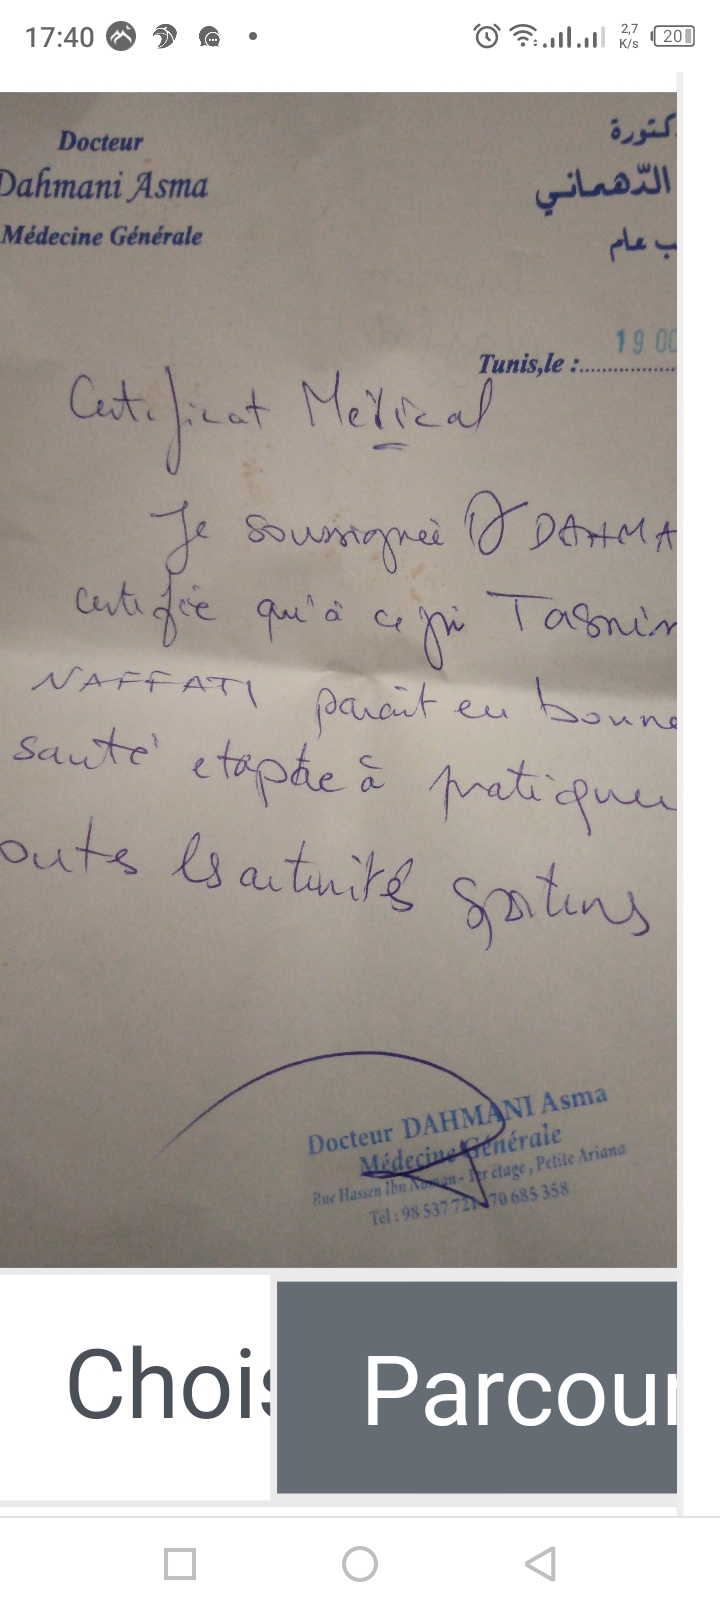 17:40
2,7
K/s
20
Docteur
Dahmani Asma
Médecine Générale
كتورة
الدّهماني
ب عام
19 OC
Tunis,le :
Certificat Médical
Je soussignée Dr DAHMA
certifie qu'à ce jr Tasnim
NAFFATI parait en bonne
santé et apte à pratiquer
outes les activités sportives
Docteur DAHMANI Asma
Médecine Générale
Rue Hassen Ibn Noman - 1er étage , Petite Ariana
Tél : 98 537 721 70 685 358
Chois
Parcour